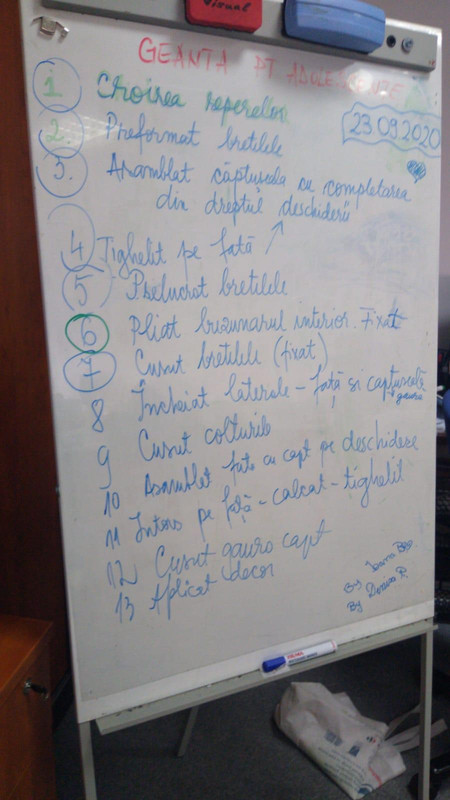 Visual
GEANTA PT ADOLESCENTE
1 Croirea reperelor
23.09.2020
2. Preformat bretelele
3. Asamblat căptușeala cu completarea
din dreptul deschiderii
4 Tighelit pe față
5 Prelucrat bretelele
6 Pliat buzunarul interior. Fixat
7 Cusut bretelele (fixat)
8 Încheiat laterale - față și captușeală
+ gaura
9 Cusut colturile
10 Asamblat fața cu capt pe deschidere
11 Întors pe față - calcat - tighelit
12 Cusut gaura capt
13 Aplicat decor
By
By Dorina R.